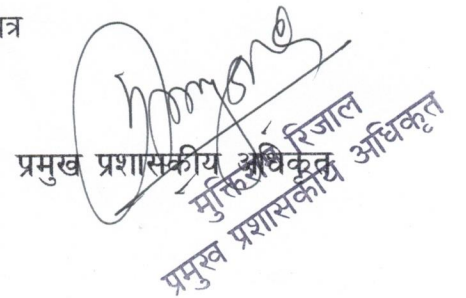 त्र
प्रमुख प्रशासकीय अधिकृत
रिजाल
प्रमुख प्रशासकीय अधिकृत